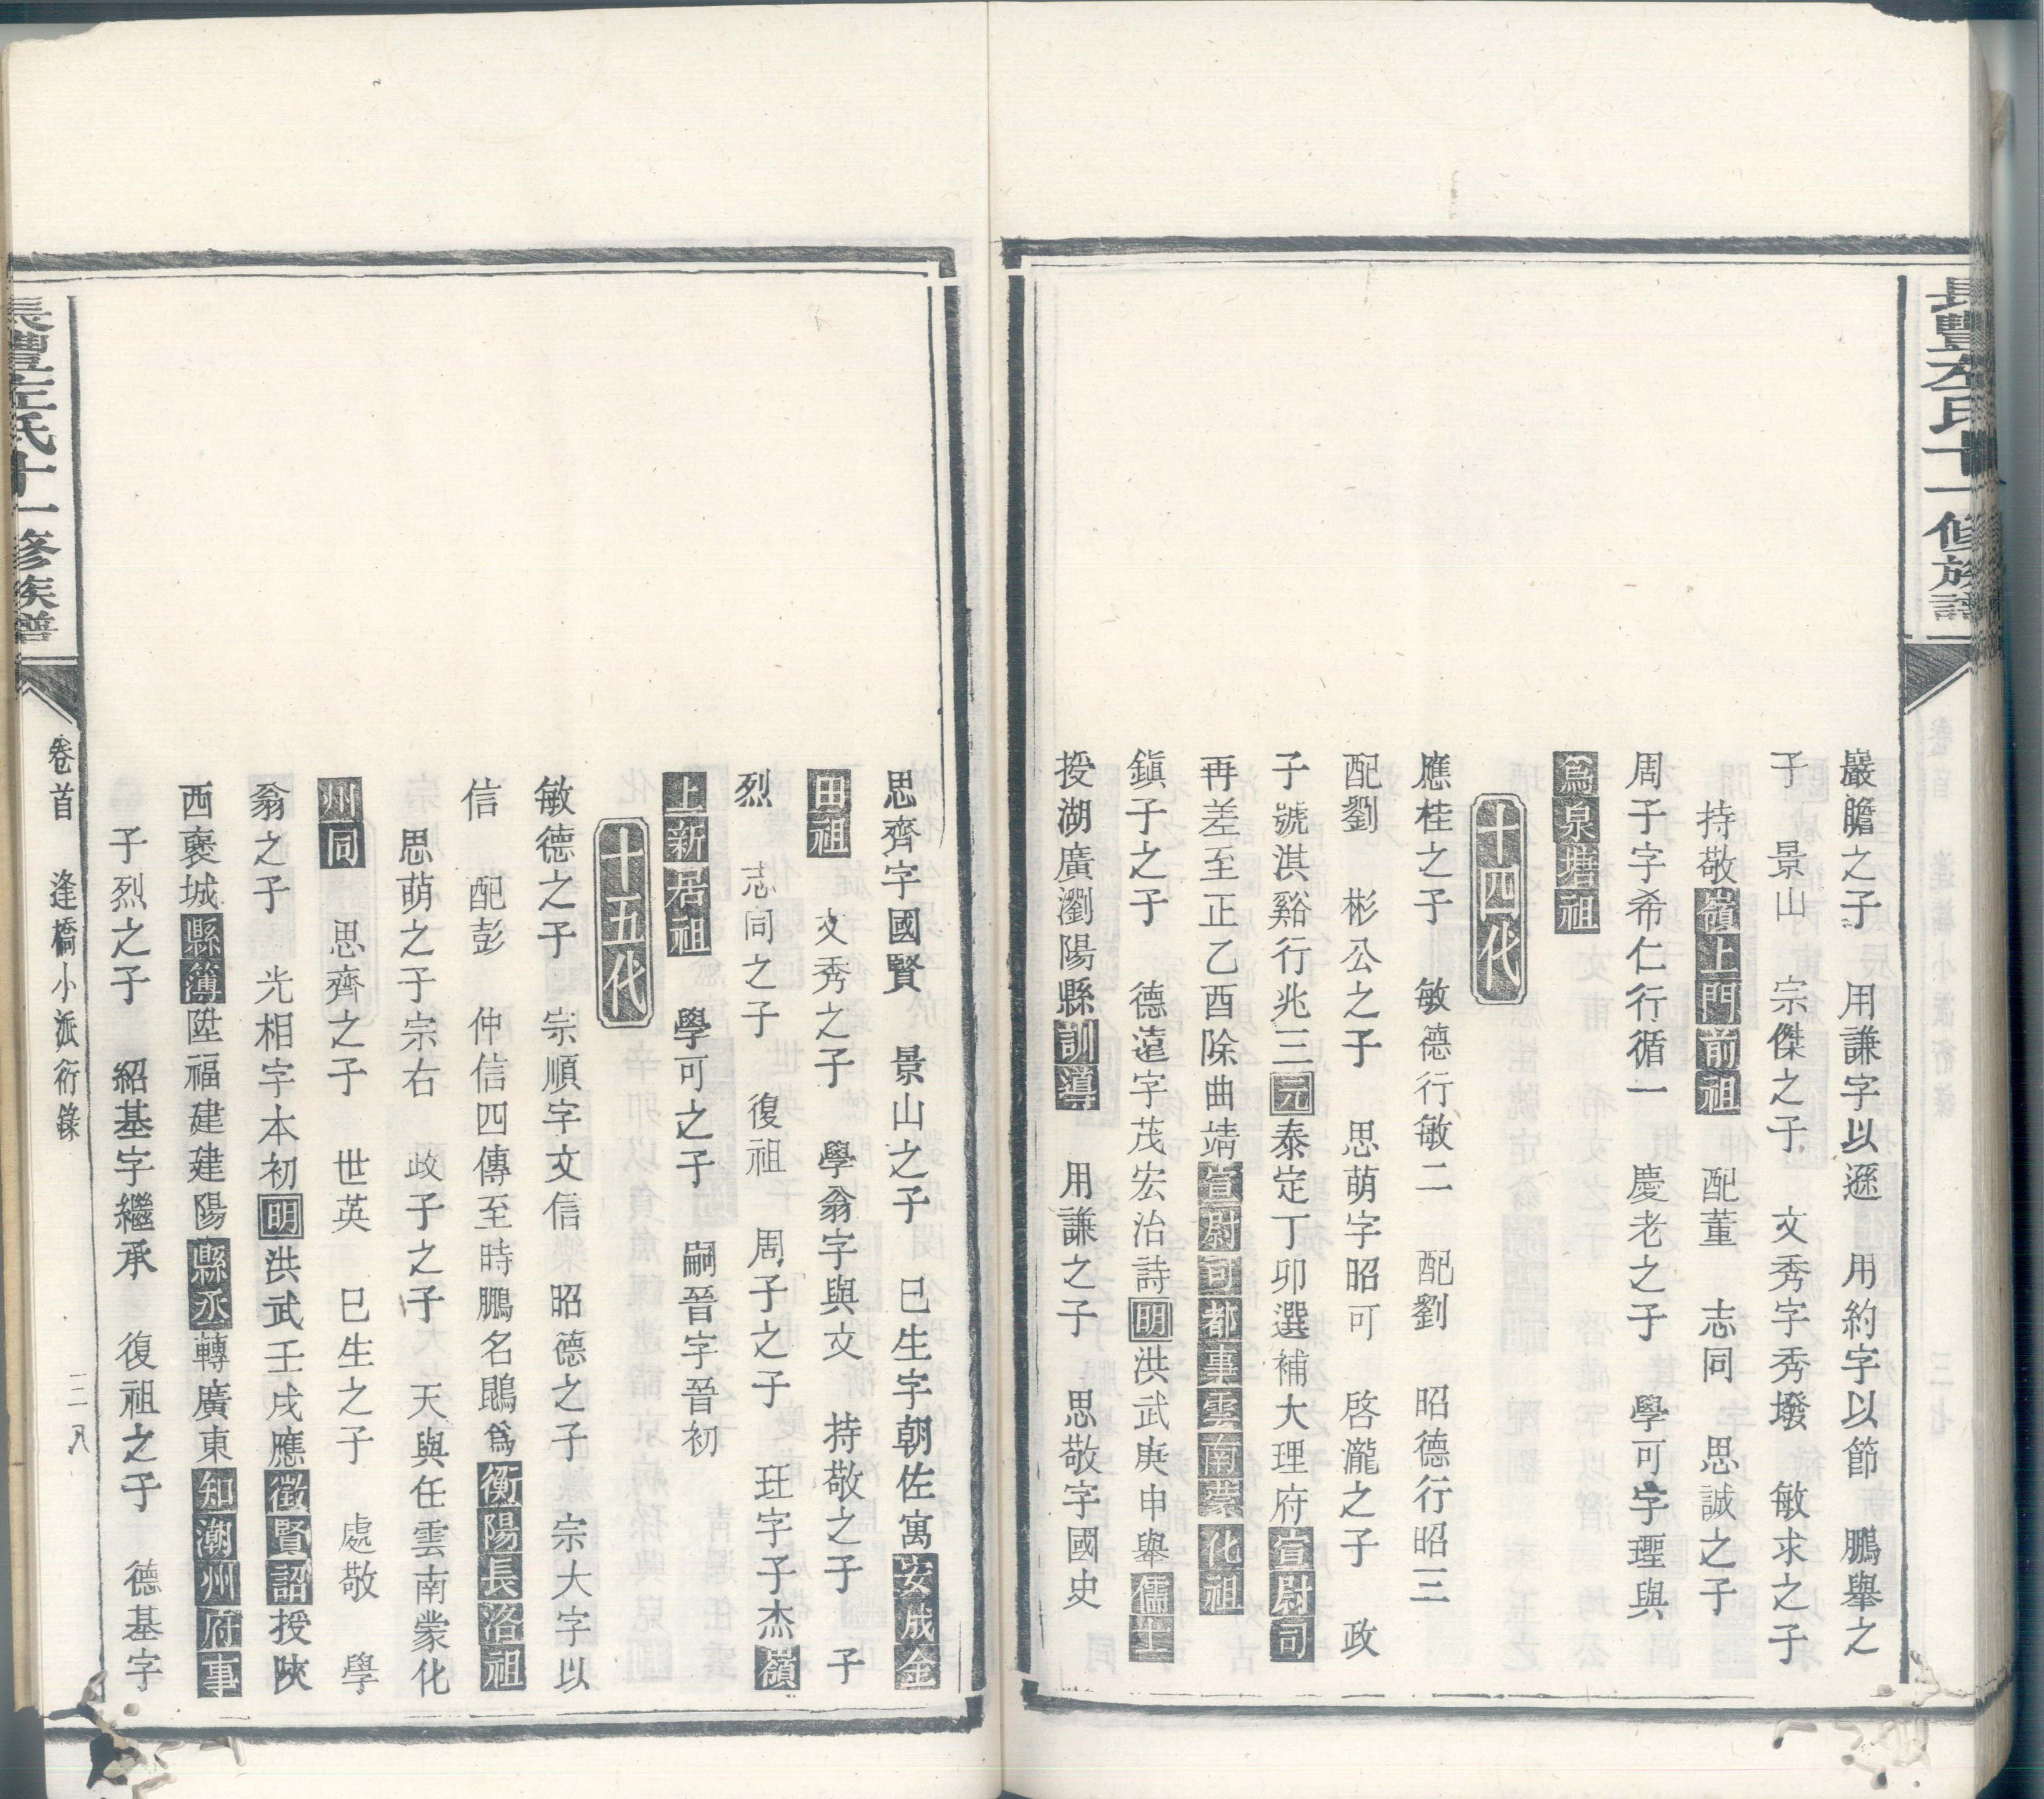 長豐左氏十一修族譜
巖膽之子　用謙字以遜　用約字以節　鵬舉之
子　景山　宗傑之子　文秀字秀墢　敏求之子
持敬嶺上門前祖　配董　志同　思誠之子
周子字希仁行循一　慶老之子　學可字理與
爲泉塘祖
十四代
應桂之子　敏德行敏二　配劉　昭德行昭三
配劉　彬公之子　思萌字昭可　啓瀧之子　政
子號淇谿行兆三元泰定丁卯選補大理府宣尉司
再差至正乙酉除曲靖宣尉司都事雲南蒙化祖
鎭子之子　德遠字茂宏治詩明洪武庚申舉儒士
授湖廣瀏陽縣訓導　用謙之子　思敬字國史
思齊字國賢　景山之子　巳生字朝佐寓安成金
田祖　文秀之子　學翁字與文　持敬之子　子
烈　志同之子　復祖　周子之子　玨字子杰嶺
上新居祖　學可之子　嗣晉字晉初
十五代
敏德之子　宗順字文信　昭德之子　宗大字以
信　配彭　仲信四傳至時鵬名鵾爲衡陽長洛祖
思萌之子宗右　政子之子　天與任雲南蒙化
州同　思齊之子　世英　巳生之子　處敬　學
翁之子　光相字本初明洪武壬戌應徵賢詔授陝
西襃城縣簿陞福建建陽縣丞轉廣東知潮州府事
子烈之子　紹基字繼承　復祖之子　德基字
長豐左氏十一修族譜
卷首　逢橋小派衍錄　三八